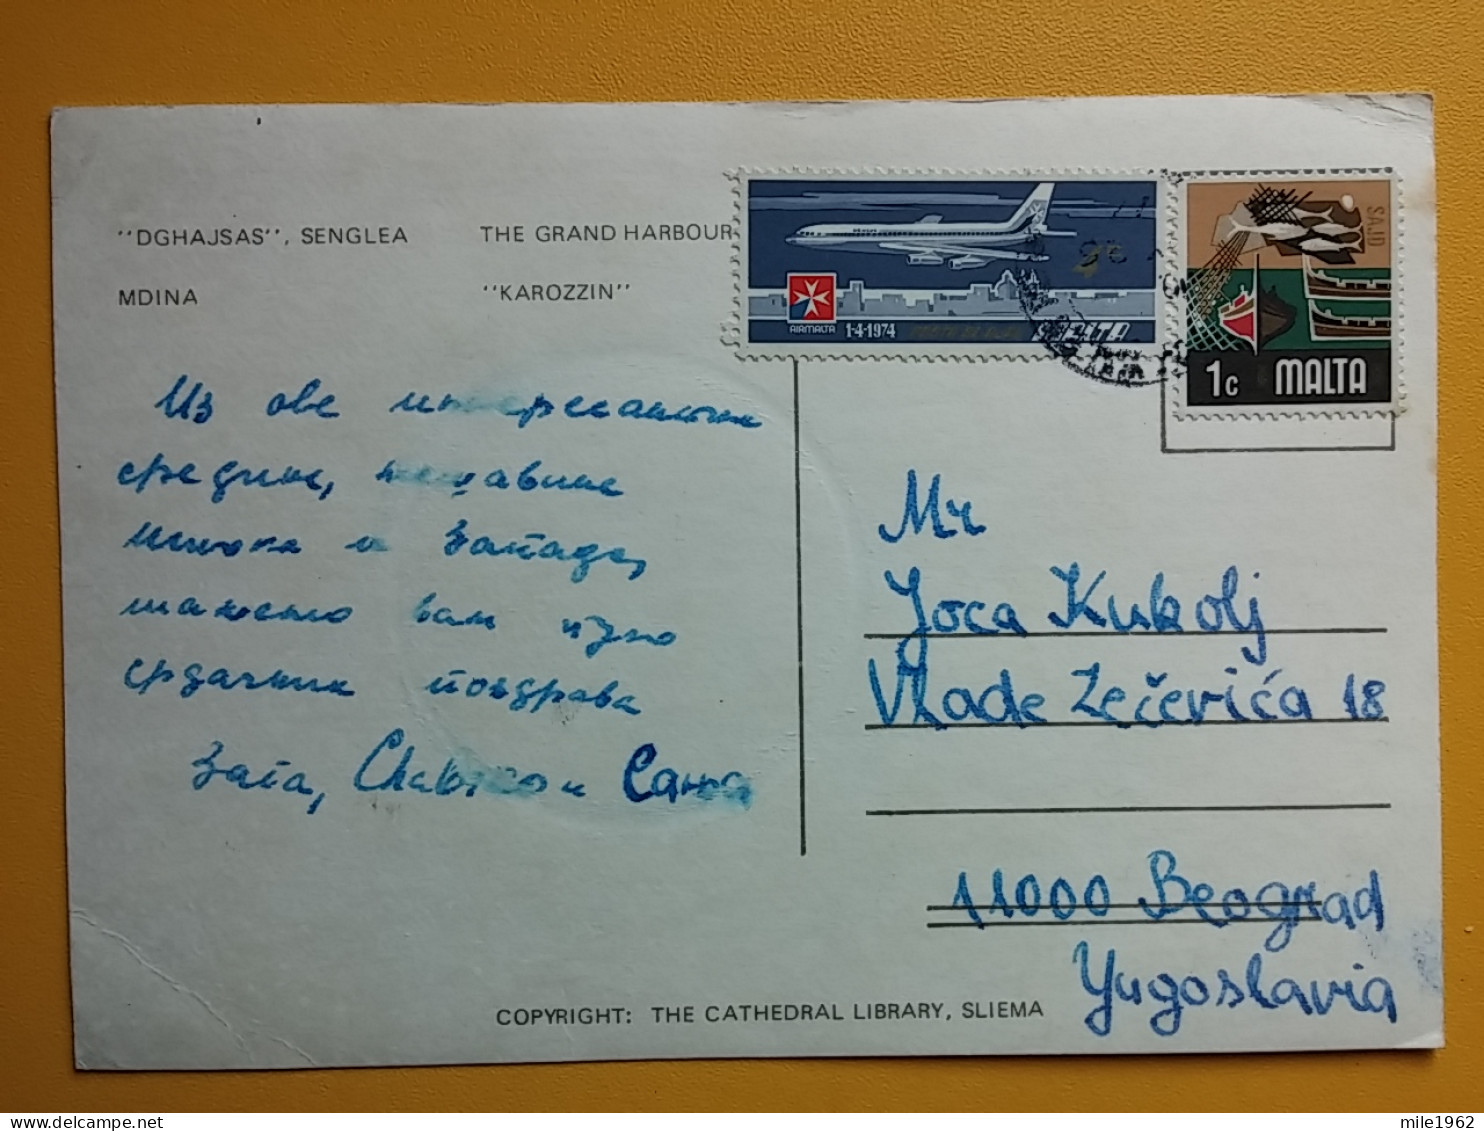 "DGHAJSAS", SENGLEA
THE GRAND HARBOUR
MDINA
"KAROZZIN"
AIRMALTA
1-4-1974
MALTA
SAJD
1c MALTA
Из ове интересантне
средине,
истока и Запада,
шаљемо вам пуно
срдачних поздрава
и Сања
Mr
Joca Kukolj
Vlade Zečevića 18
11000 Beograd
Yugoslavia
COPYRIGHT: THE CATHEDRAL LIBRARY, SLIEMA
mile1962